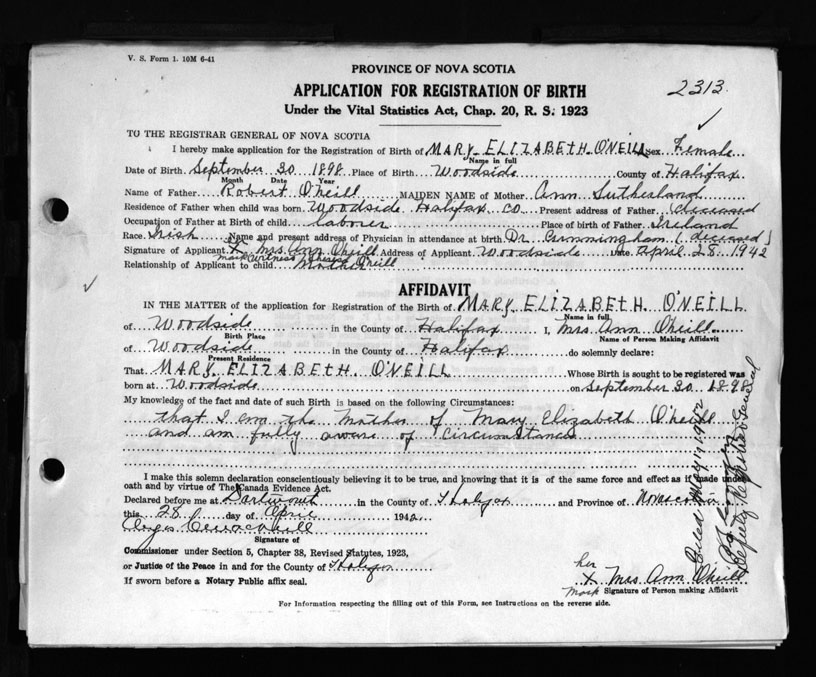 V. S. Form 1. 10M 6-41
PROVINCE OF NOVA SCOTIA
APPLICATION FOR REGISTRATION OF BIRTH 2313
Under the Vital Statistics Act, Chap. 20, R. S. 1923
TO THE REGISTRAR GENERAL OF NOVA SCOTIA
I hereby make application for the Registration of Birth of MARY ELIZABETH O'NEILL Sex Female
Name in full
Date of Birth September 30 1898 Place of Birth Woodside County of Halifax
Month Date Year
Name of Father Robert O'neill MAIDEN NAME of Mother Ann Sutherland
Residence of Father when child was born Woodside Halifax Co. Present address of Father (deceased
Occupation of Father at Birth of child laborer Place of birth of Father Ireland
Race Irish Name and present address of Physician in attendance at birth Dr Cunningham (deceased)
Signature of Applicant X Mrs. Ann O'neill Address of Applicant Woodside Date April 28 1942
mark witness Theresa O'neill
Relationship of Applicant to child Mother
AFFIDAVIT
IN THE MATTER of the application for Registration of the Birth of MARY ELIZABETH O'NEILL
Name in full
of Woodside in the County of Halifax I, Mrs Ann O'neill
Birth Place Name of Person Making Affidavit
of Woodside in the County of Halifax do solemnly declare:
Present Residence
That MARY ELIZABETH O'NEILL Whose Birth is sought to be registered was
born at Woodside on September 30 1898
My knowledge of the fact and date of such Birth is based on the following Circumstances:
that I am the Mother of Mary Elizabeth O'neill
and am fully aware of circumstances
I make this solemn declaration conscientiously believing it to be true, and knowing that it is of the same force and effect as if made under
oath and by virtue of The Canada Evidence Act.
Declared before me at Dartmouth in the County of Halifax and Province of Nova Scotia
this 28 day of April 1942
Signature of
Commissioner under Section 5, Chapter 38, Revised Statutes, 1923,
or Justice of the Peace in and for the County of Halifax
If sworn before a Notary Public affix seal.
her
X Mrs. Ann O'neill
mark Signature of Person making Affidavit
For Information respecting the filling out of this Form, see Instructions on the reverse side.
Filed May 19 1942
Deputy Registrar General